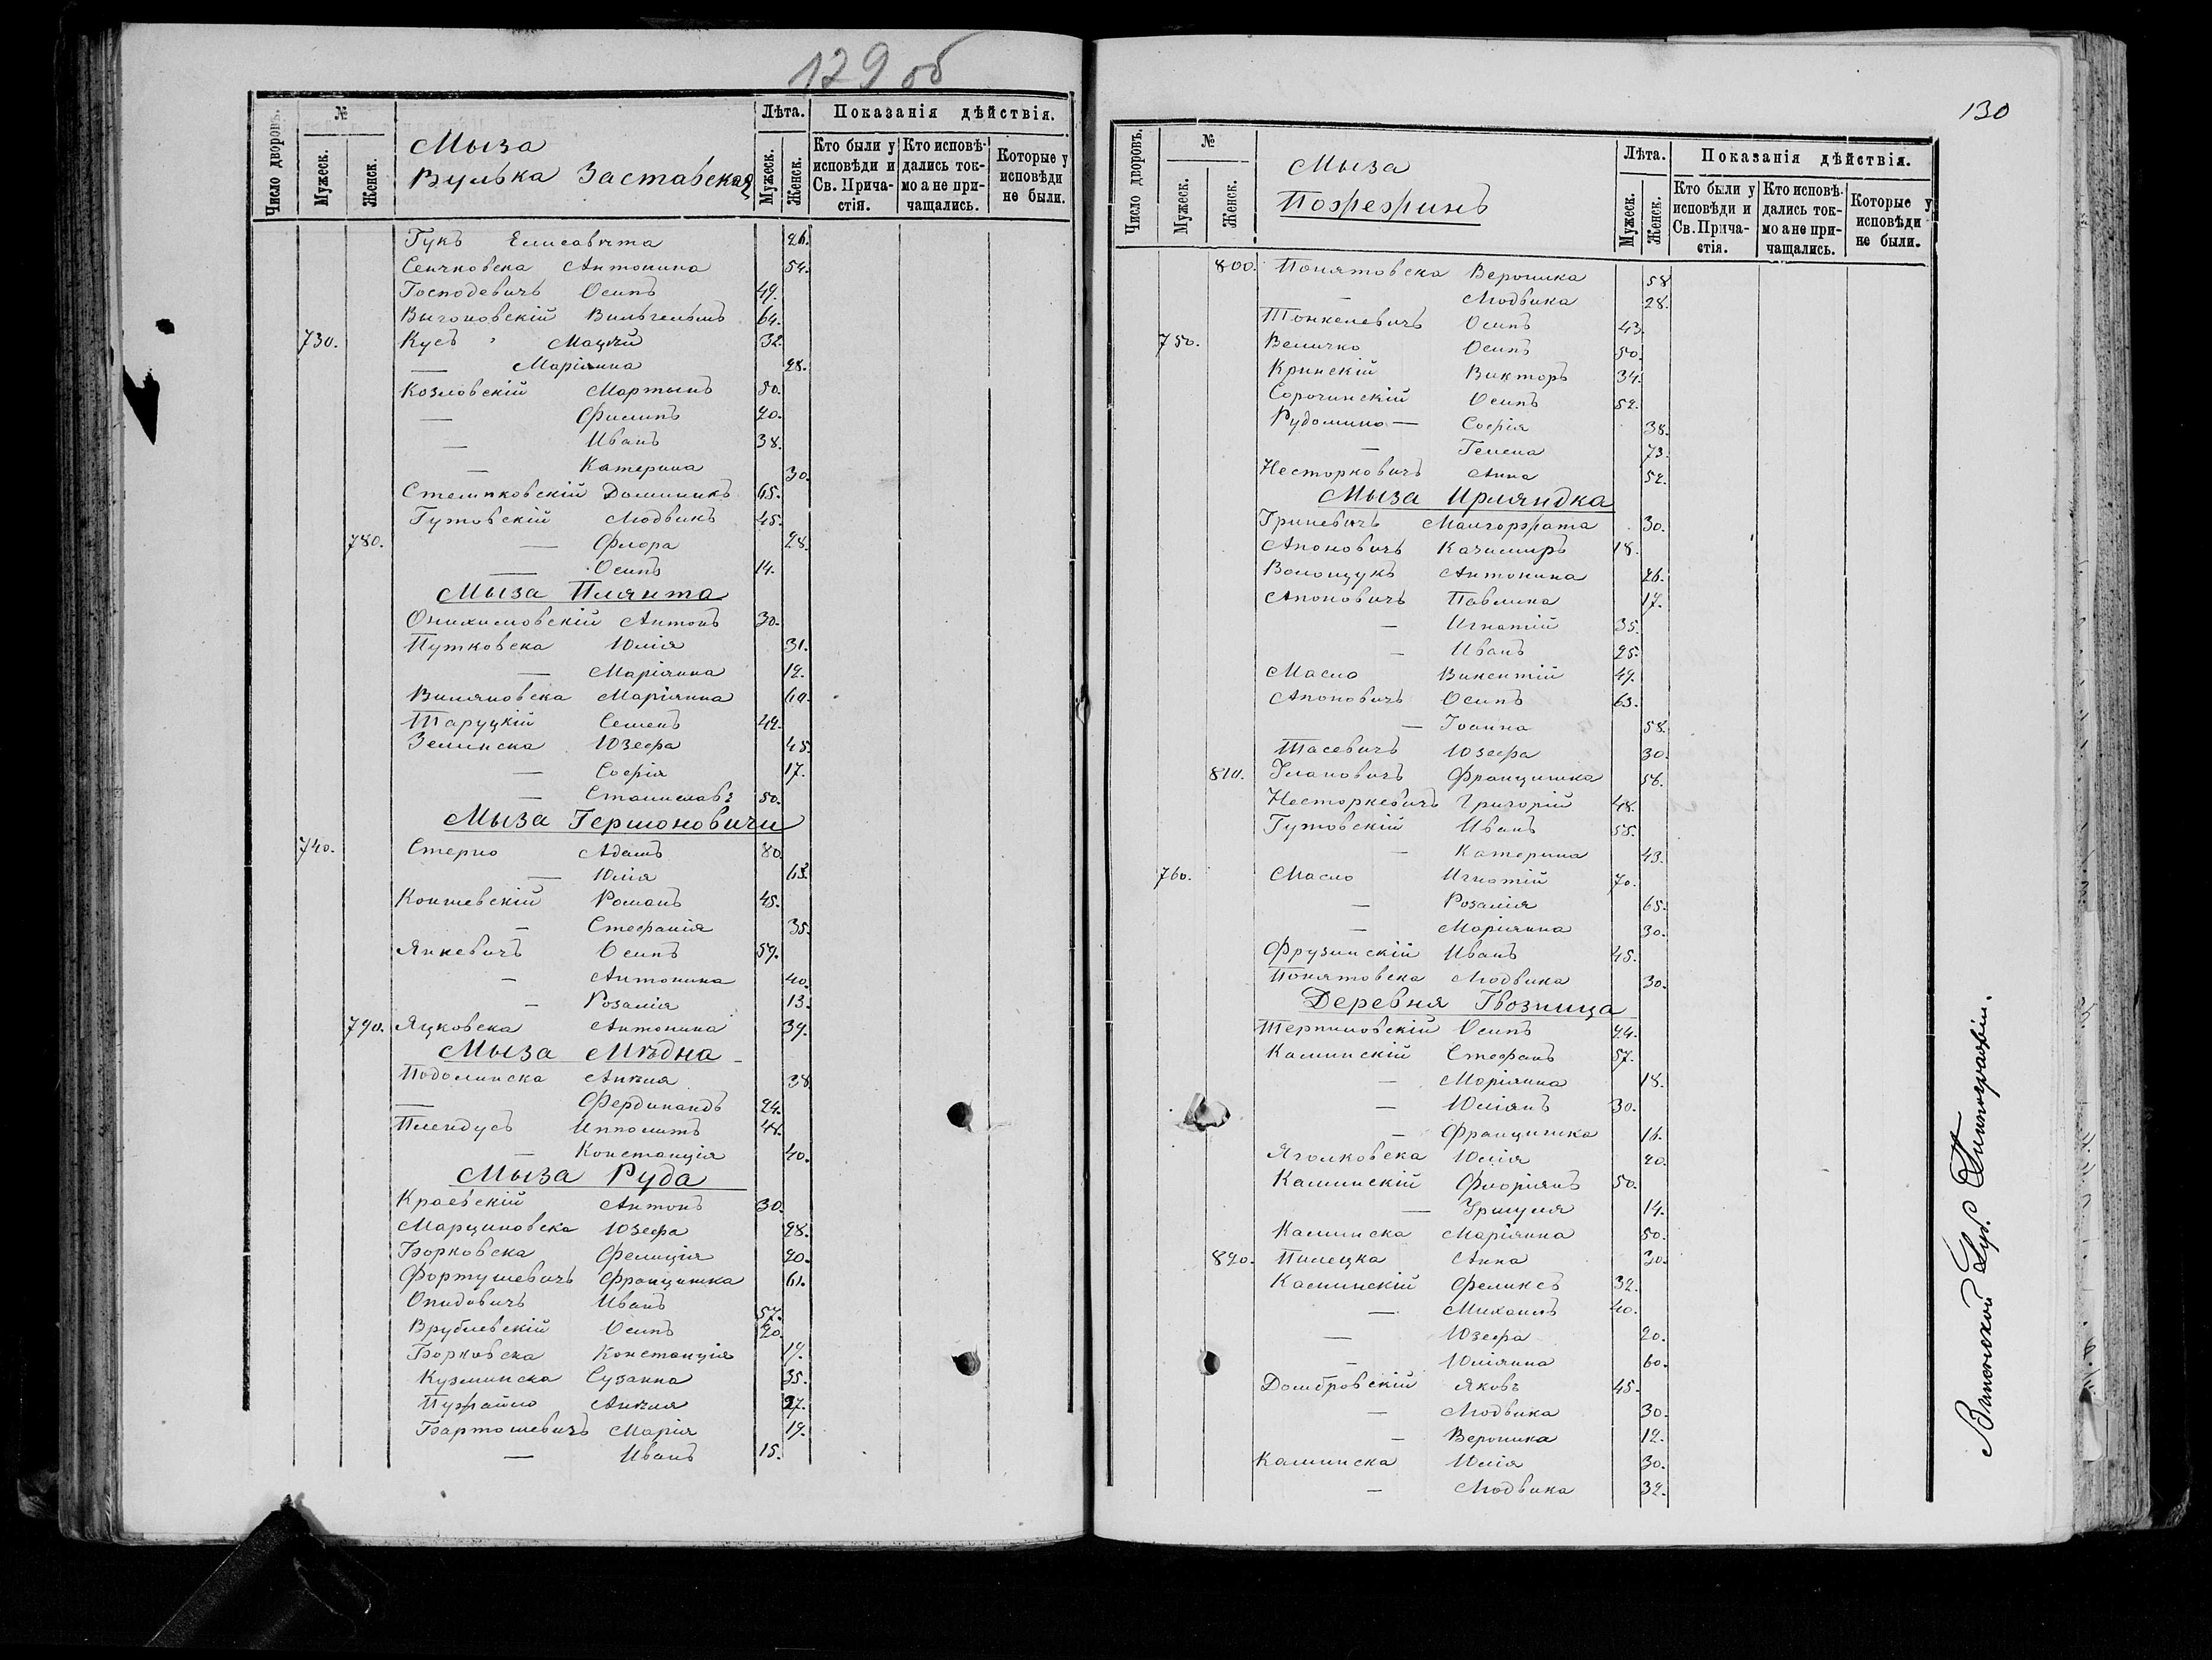 129 об
Число дворовъ.
№
Мужеск.
Женск.
Мыза
Вулька Заставская
Лѣта.
Мужеск.
Женск.
Показанія дѣйствія.
Кто были у исповѣди и Св. Прича-стія.
Кто исповѣ-дались ток-мо а не при-чащались.
Которые у исповѣди не были.
Гукъ Елисавѣта 26.
Сенчковска Антонина 54.
Господевичъ Осипъ 49.
Выгоновскій Вильгельмъ 64.
730. Кусъ Мацѣй 32.
— Маріянна 28.
Козловскій Мартынъ 50.
— Филипъ 20.
— Иванъ 38.
— Катерина 30.
Стемпковскій Доминикъ 65.
Гутовскій Людвикъ 45.
780. — Флора 28.
— Осипъ 14.
Мыза Плянта
Онихимовскій Антонъ 30.
Путковска Юлія 31.
— Маріянна 12.
Виляновска Маріянна 60.
Таруцкій Семенъ 42.
Зелинска Юзефа 45.
— Софія 17.
— Станиславъ 50.
Мыза Гермоновичи
740. Стерно Адамъ 80.
— Юлія 63.
Концевскій Романъ 45.
— Стефанія 35.
Янкевичъ Осипъ 59.
— Антонина 40.
— Розалія 13.
790. Яцковска Антонина 39.
Мыза Мѣдна
Подолинска Анѣля 38.
— Фердинандъ 24.
Плендусъ Ипполитъ 48.
— Констанція 40.
Мыза Руда
Краевскій Антонъ 30.
Марциновска Юзефа 28.
Борковска Фелиція 20.
Фортушевичъ Францишка 61.
Опидовичъ Иванъ 57.
Врублевскій Осипъ 20.
Борковска Констанція 19.
Кузминска Сузанна 35.
Пужайло Анѣля 27.
Бартошевичъ Марія 19.
— Иванъ 15.
130
Число дворовъ.
№
Мужеск.
Женск.
Мыза
Пожежинъ
Лѣта.
Мужеск.
Женск.
Показанія дѣйствія.
Кто были у исповѣди и Св. Прича-стія.
Кто исповѣ-дались ток-мо а не при-чащались.
Которые у исповѣди не были.
800. Понятовска Вероника 58
— Людвика 28.
Тонкелевичъ Осипъ 43.
750. Величко Осипъ 50.
Кринскій Викторъ 34.
Сорочинскій Осипъ 52.
Рудомино — Софія 38.
— Гелена 73.
Несторковичъ Анна 52.
Мыза Ирляндка
Гриневичъ Малгоржата 30.
Апоновичъ Казимиръ 18.
Волощукъ Антонина 26.
Апоновичъ Павлина 17.
— Игнатій 35.
— Иванъ 25.
Масло Викентій 49.
Апоновичъ Осипъ 63.
— Іоанна 58.
Тасевичъ Юзефа 30.
810. Улановичъ Францишка 56.
Несторкевичъ Григорій 48.
Гутовскій Иванъ 55.
— Катерина 43.
760. Масло Игнатій 70.
— Розалія 65.
— Маріянна 30.
Фрузинскій Иванъ 45.
Понятовска Людвика 30.
Деревня Гвозница
Терпиловскій Осипъ 24.
Каминскій Стефанъ 57.
— Маріянна 18.
— Юліянъ 30.
— Францишка 16.
Яголковска Юлія 20.
Каминскій Флоріянъ 50.
— Уршуля 14.
Каминска Маріянна 50.
820. Пилецка Анна 30.
Каминскій Феликсъ 32.
— Михаилъ 40.
— Юзефа 20.
— Юліянна 60.
Домбровскій Яковъ 45.
— Людвика 30.
— Вероника 12.
Каминска Юлія 30.
— Людвика 32.
Виленской Губ. Типографіи.